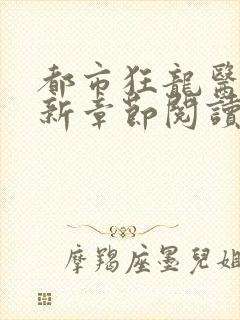 都市狂龍醫
新章節閱讀
摩羯座墨兒姐